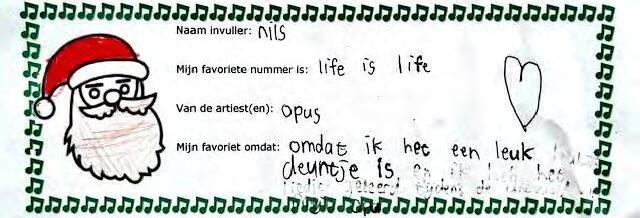 Naam invuller: nils
Mijn favoriete nummer is: life is life
Van de artiest(en): opus
Mijn favoriet omdat: omdat ik het een leuk
deuntje is en ik heb het
liedje geleerd tijdens de